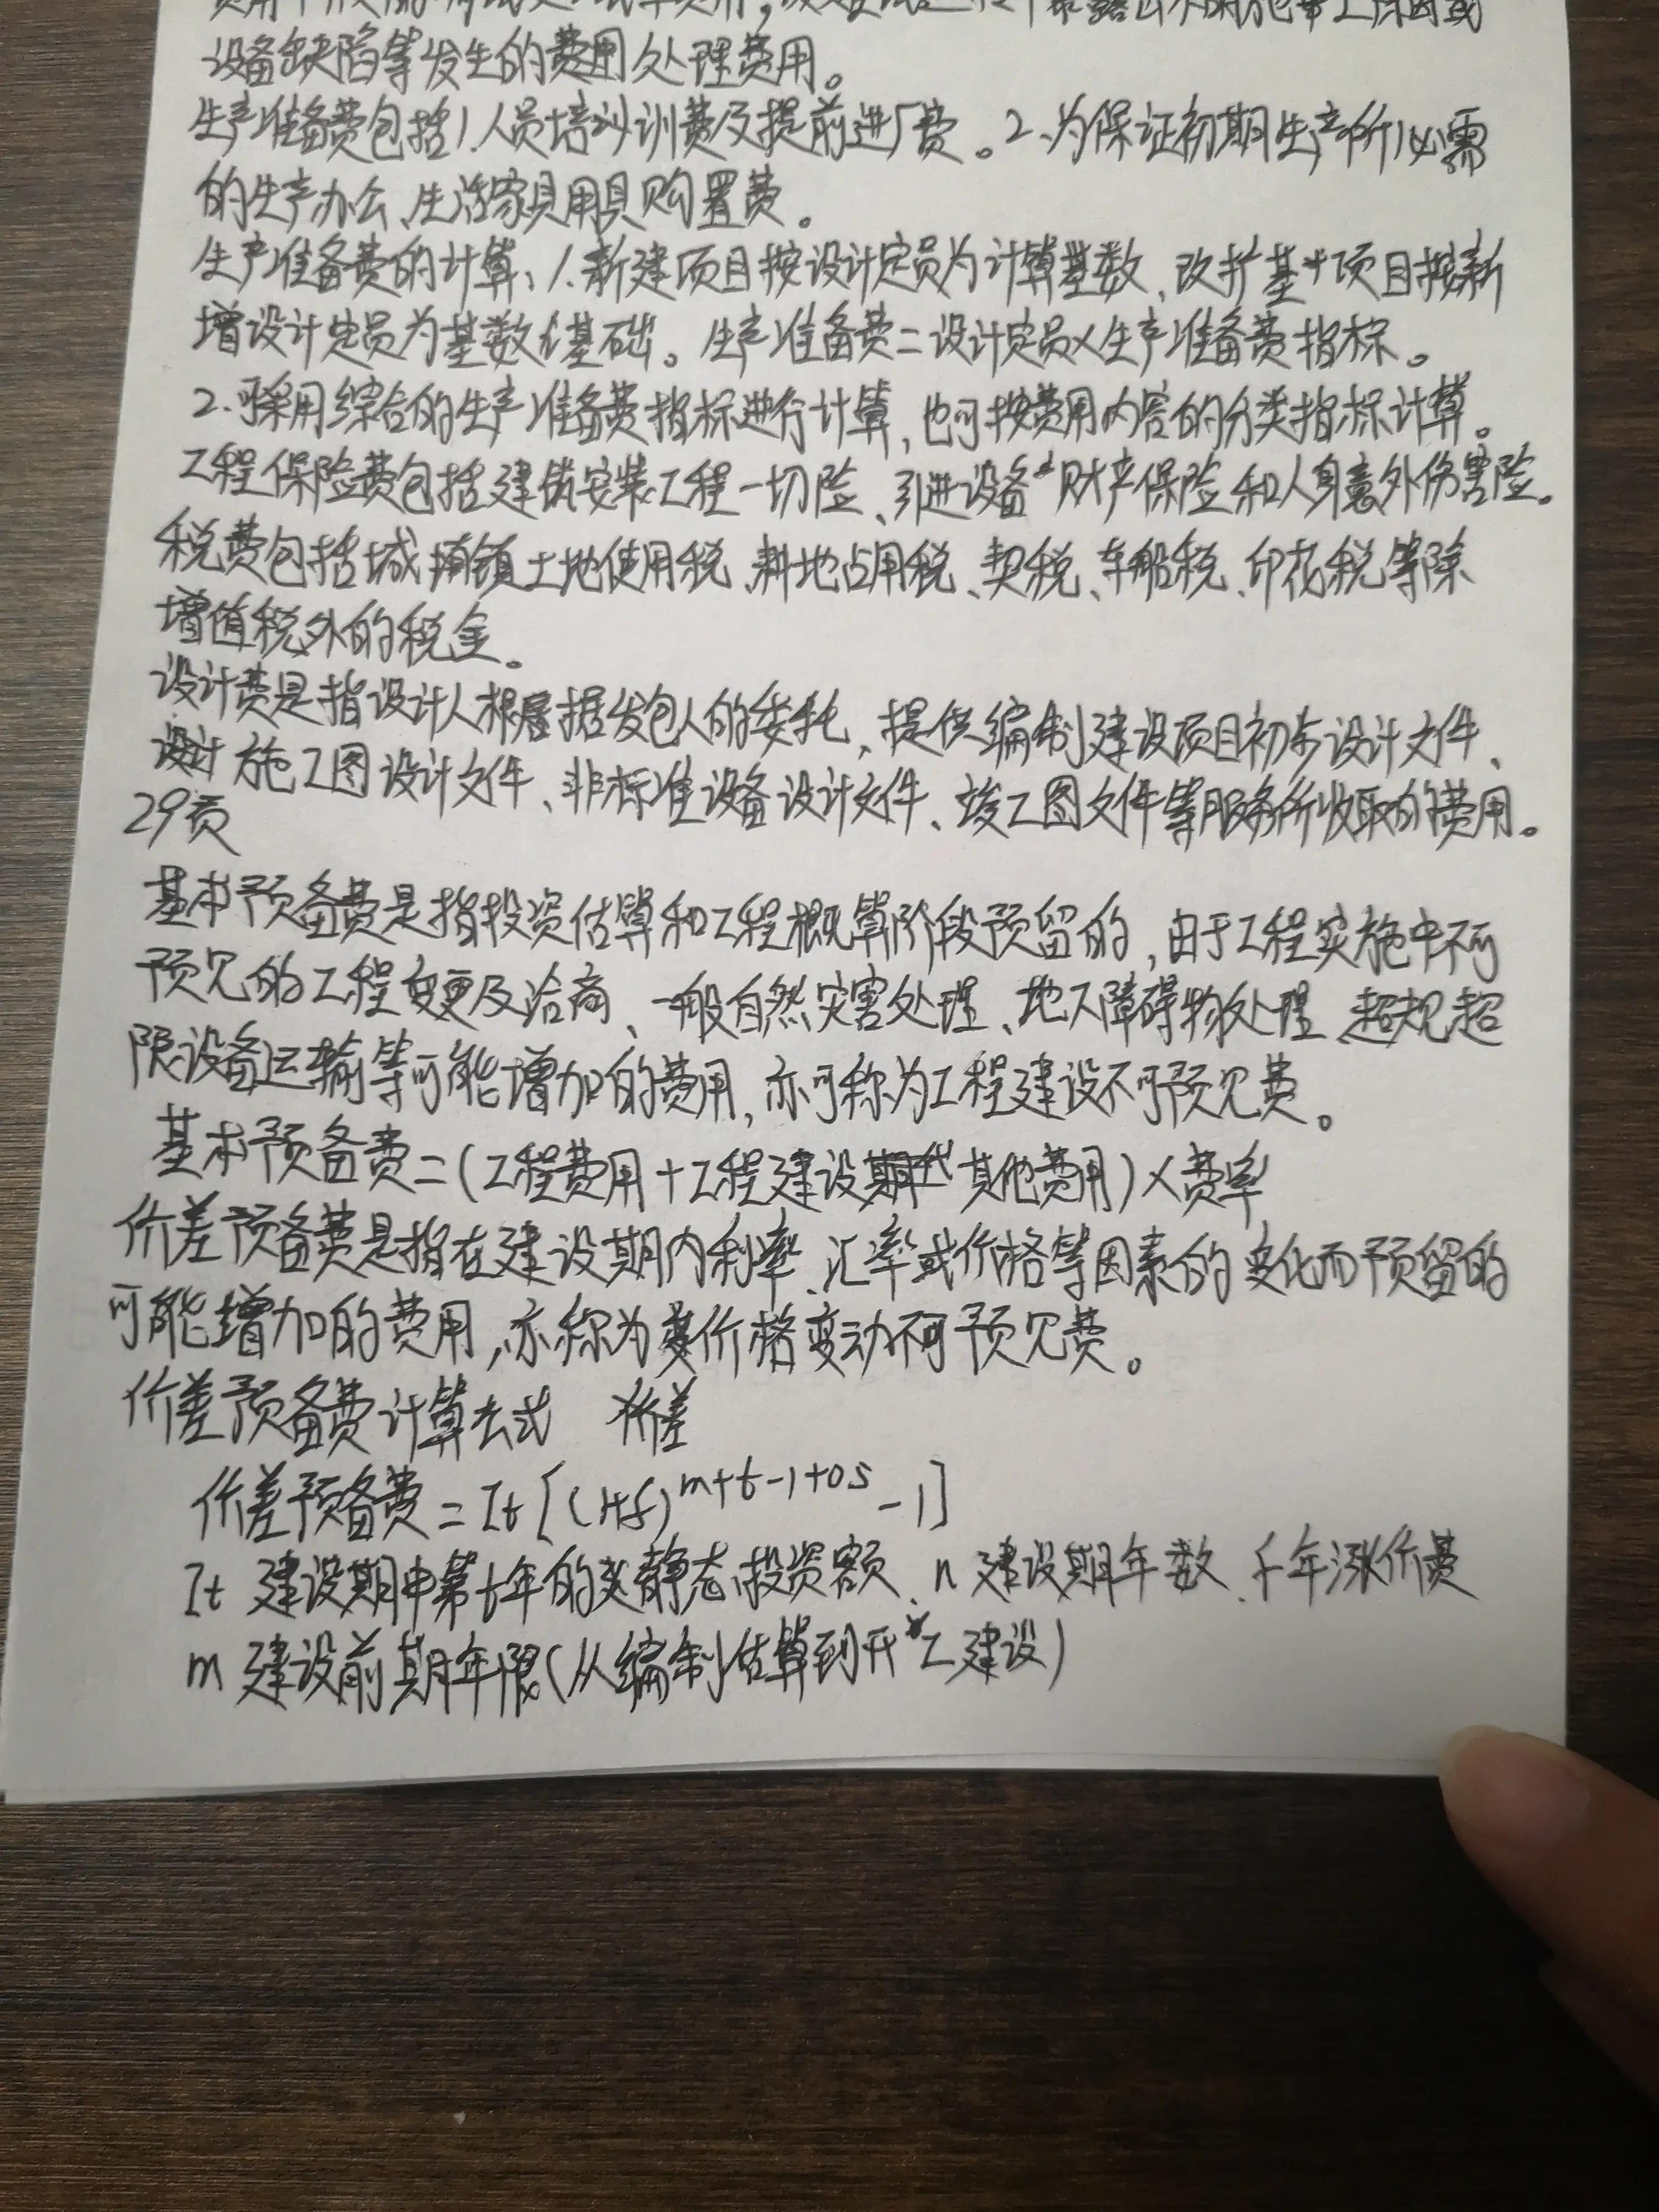 设备缺陷等发生的费用处理费用。
生产准备费包括1.人员培训费及提前进厂费。2、为保证初期生产所必需
的生产办公、生活家具用具购置费。
生产准备费的计算、1.新建项目按设计定员为计算基数、改扩基项目按新
增设计定员为基数基础。生产准备费=设计定员×生产准备费指标。
2.可采用综合的生产准备费指标进行计算,也可按费用内容的分类指标计算。
工程保险费包括建筑安装工程一切险、引进设备财产保险和人身意外伤害险。
税费包括城镇土地使用税、耕地占用税、契税、车船税、印花税等除
增值税外的税金。
设计费是指设计人根据发包人的委托,提供编制建设项目初步设计文件、
设计施工图设计文件、非标准设备设计文件、竣工图文件等服务所收取的费用。
29页
基本预备费是指投资估算和工程概算阶段预留的,由于工程实施中不可
预见的工程变更及洽商、一般自然灾害处理、地下障碍物处理、超规超
限设备运输等可能增加的费用,亦可称为工程建设不可预见费。
基本预备费=(工程费用+工程建设其他费用)×费率
价差预备费是指在建设期内利率、汇率或价格等因素的变化而预留的
可能增加的费用,亦称为价格变动不可预见费。
价差预备费计算公式 价差
价差预备费=It[(1+f)^m+t-1+0.5-1]
It 建设期中第t年的静态投资额、n 建设期年数、f年涨价费
m 建设前期年限(从编制估算到开工建设)